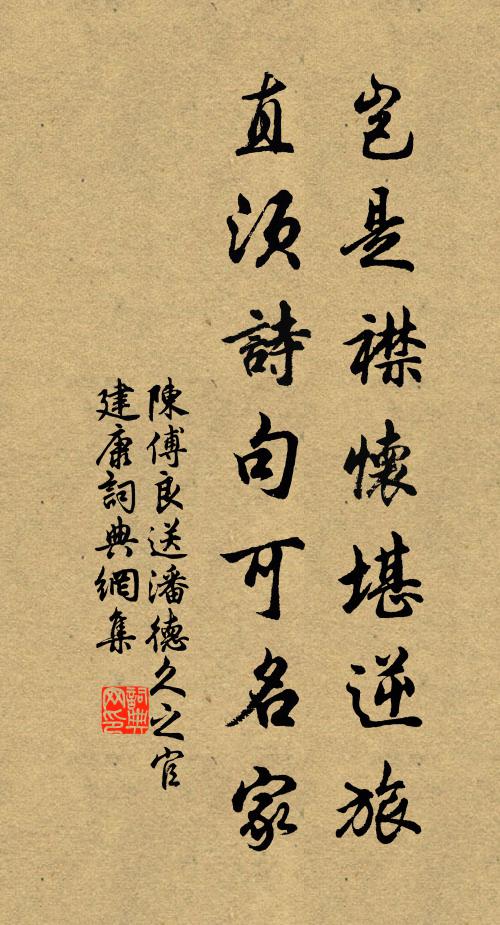 豈是襟懷堪逆旅
直須詩句可名家
陳傅良送潘德久之官
建康詞典網集
詞典
网印